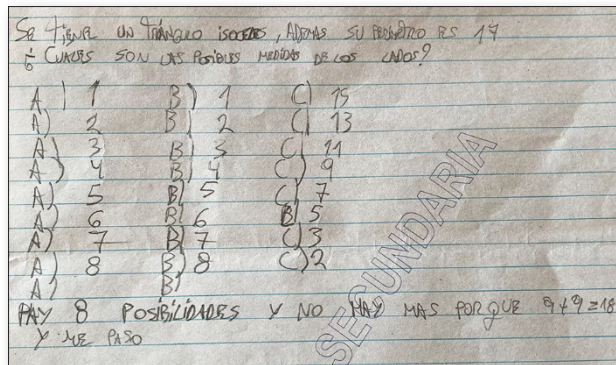 SE TIENE UN TRIÁNGULO ISOCELES, ADEMAS SU PERIMETRO ES 17
¿ CUALES SON LAS POSIBLES MEDIDAS DE LOS LADOS?
A) 1 B) 1 C) 15
A) 2 B) 2 C) 13
A) 3 B) 3 C) 11
A) 4 B) 4 C) 9
A) 5 B) 5 C) 7
A) 6 B) 6 B) 5
A) 7 B) 7 C) 3
A) 8 B) 8 C) 2
A) B)
HAY 8 POSIBILIDADES Y NO HAY MAS PORQUE 9+9=18
Y ME PASO
SECUNDARIA